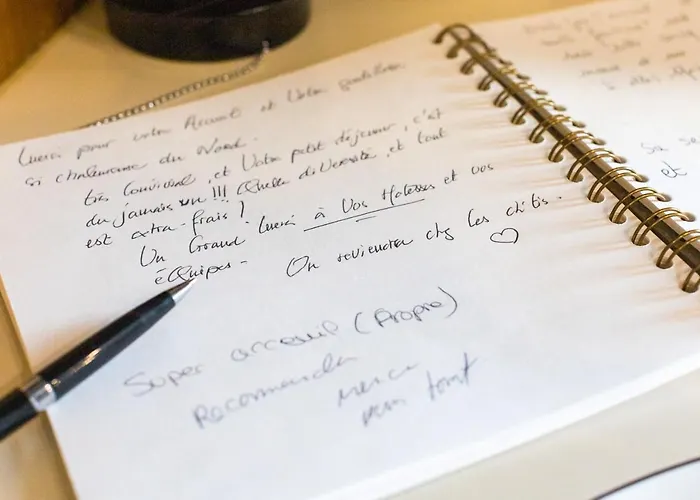 Merci pour votre Accueil et Votre gentillesse
si chaleureuse du Nord.
très Convivial, et Votre petit déjeuner, c'est
du jamais vu !!! Quelle diversité, et tout
est extra-frais !
Un Grand Merci à Vos Hotesses et vos
éQuipes -
On reviendra chez Les ch'tis.
♡
Super acceuil (Propre)
Recommenda
Merci
pour tout
Sa se
et